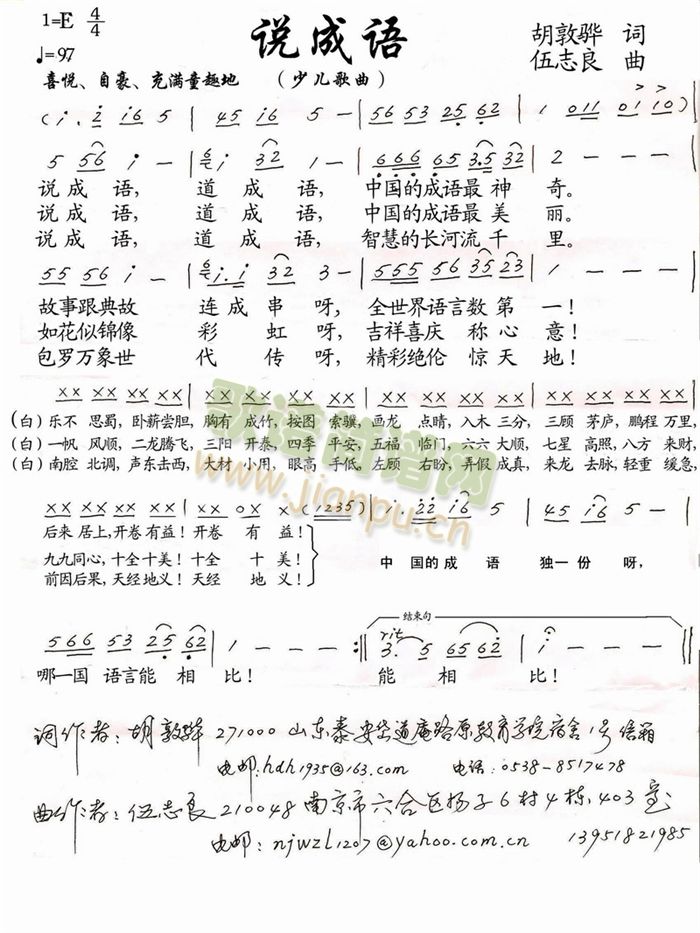 1=E 4/4
说成语
胡敦骅 词
♩=97
伍志良 曲
喜悦、自豪、充满童趣地 (少儿歌曲)
说成语, 道成语, 中国的成语最神奇。
说成语, 道成语, 中国的成语最美丽。
说成语, 道成语, 智慧的长河流千里。
故事跟典故 连成串呀, 全世界语言数第一!
如花似锦像 彩虹呀, 吉祥喜庆称心意!
包罗万象世 代传呀, 精彩绝伦惊天地!
(白) 乐不 思蜀, 卧薪尝胆, 胸有 成竹, 按图 索骥, 画龙 点睛, 入木 三分, 三顾 茅庐, 鹏程 万里,
(白) 一帆 风顺, 二龙腾飞, 三阳 开泰, 四季 平安, 五福 临门, 六六 大顺, 七星 高照, 八方 来财,
(白) 南腔 北调, 声东击西, 大材 小用, 眼高 手低, 左顾 右盼, 弄假 成真, 来龙 去脉, 轻重 缓急,
后来 居上, 开卷 有益! 开卷 有 益!
九九同心, 十全 十美! 十全 十 美!
前因后果, 天经 地义! 天经 地 义!
中 国 的 成 语 独 一 份 呀,
歌谱简谱网
www.jianpu.cn
结束句
rit
哪一国 语言能 相 比! 能 相 比!
词作者: 胡敦骅 271000 山东泰安岱道庵路原教育学院宿舍1号信箱
电邮: hdh1935@163.com 电话: 0538-8517478
曲作者: 伍志良 210048 南京市六合区扬子6村4栋, 403室
电邮: njwzl1207@yahoo.com.cn 13951821985